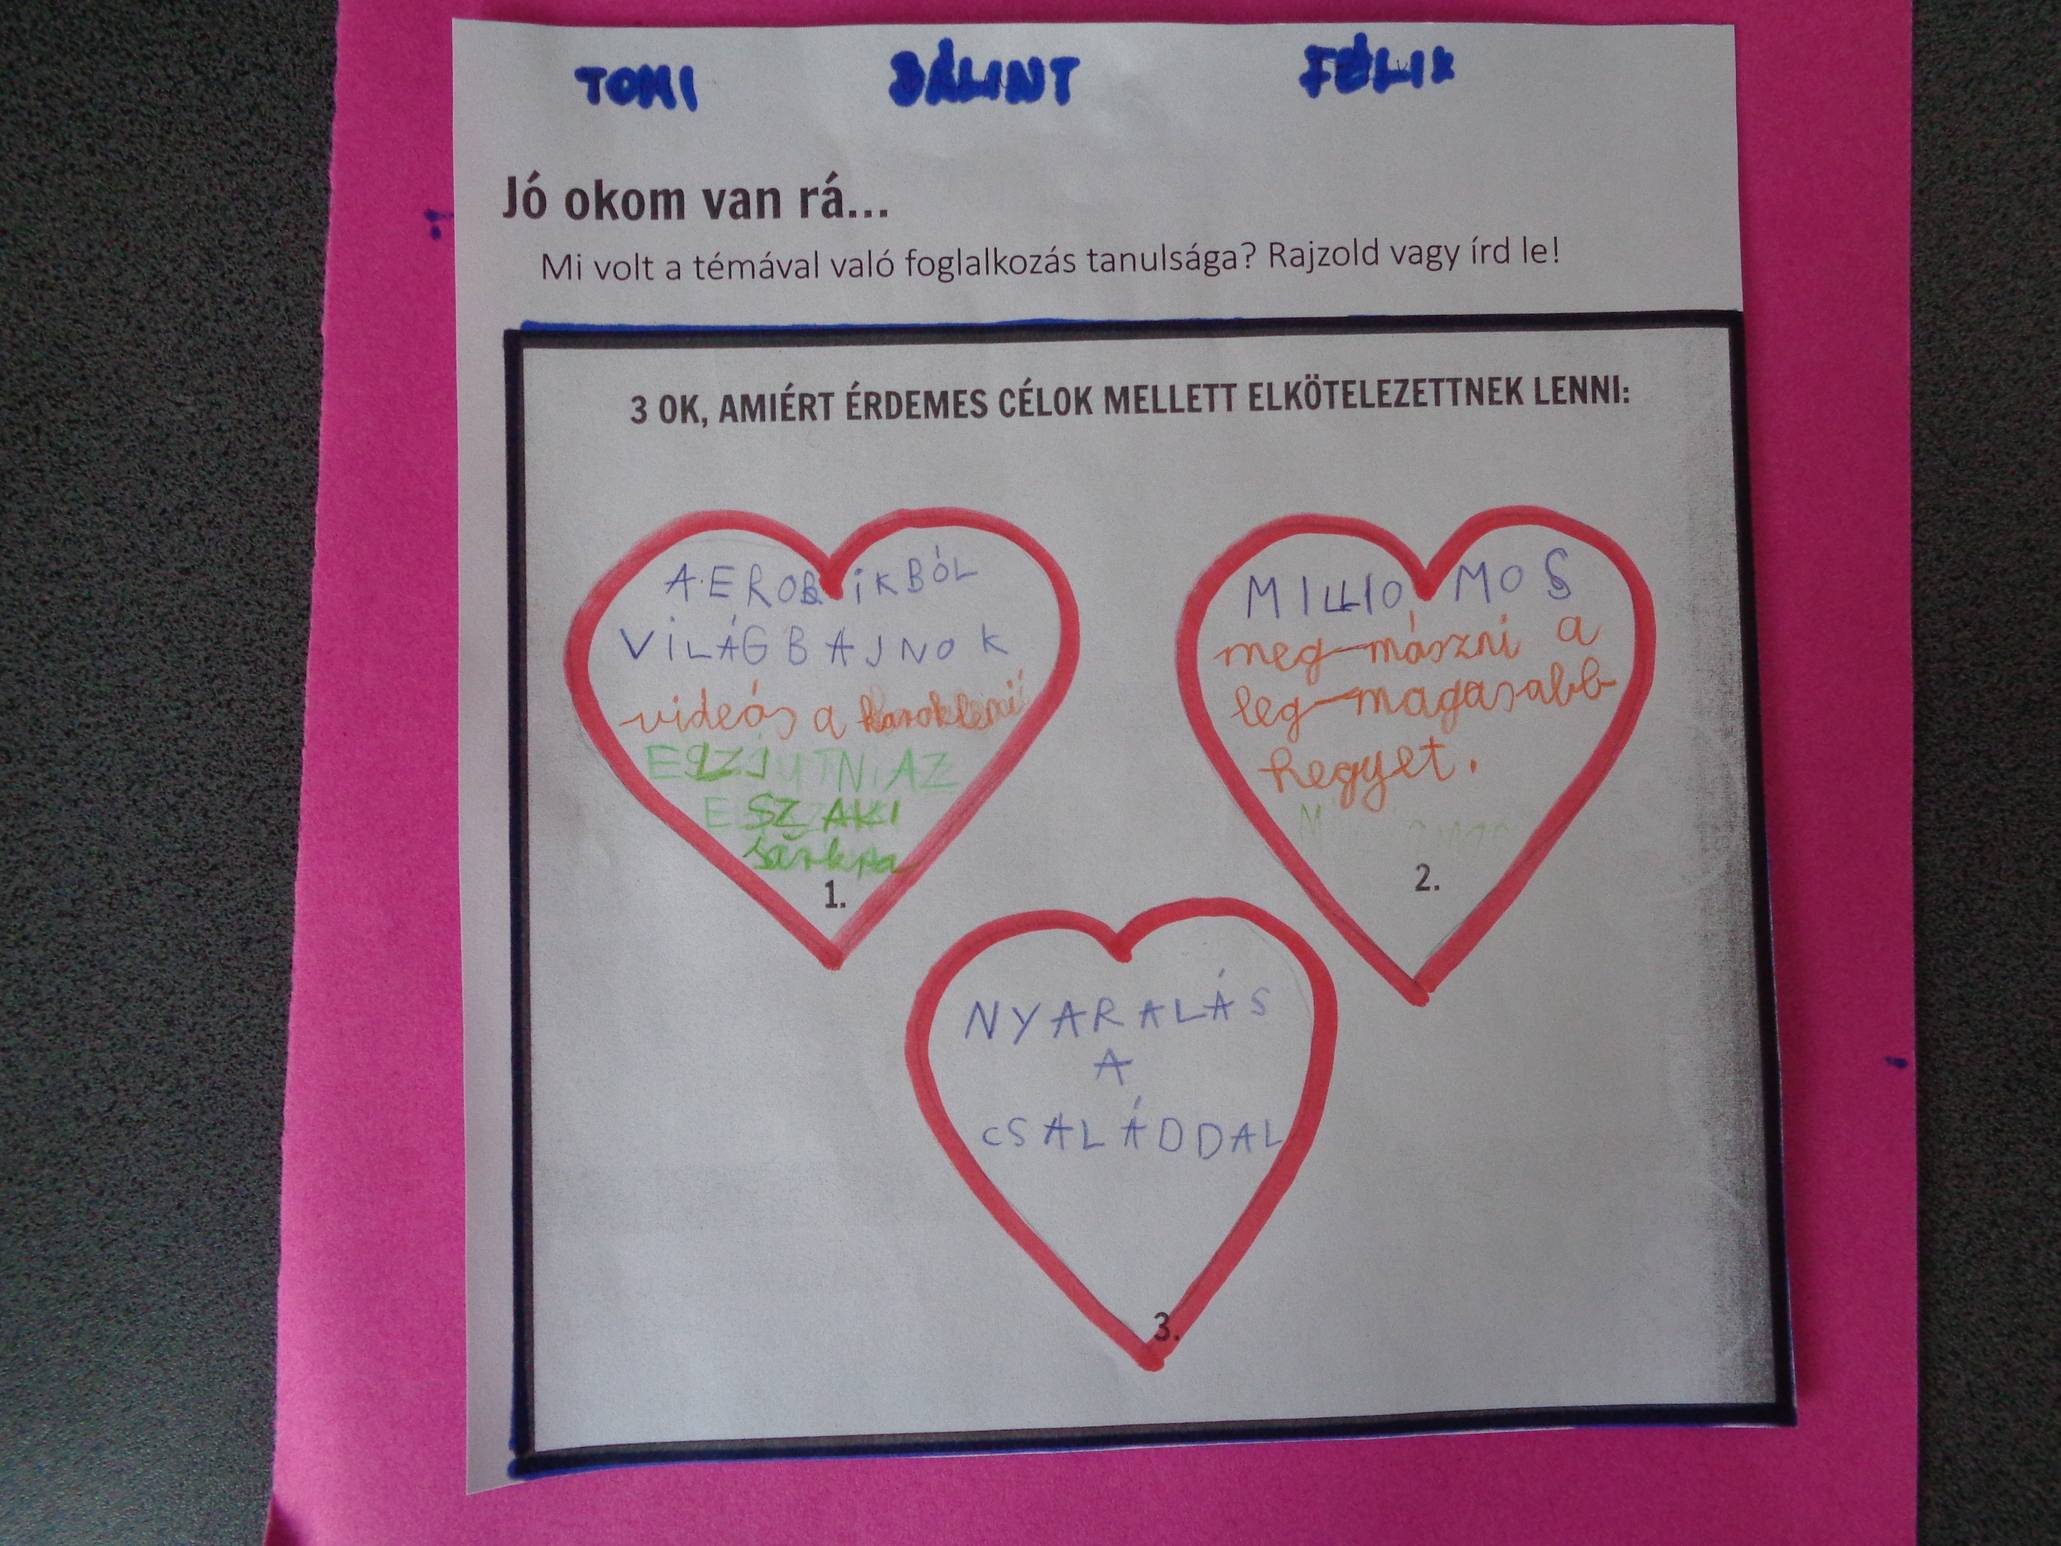 TOMI BÁLINT FÉLIX
Jó okom van rá...
Mi volt a témával való foglalkozás tanulsága? Rajzold vagy írd le!
3 OK, AMIÉRT ÉRDEMES CÉLOK MELLETT ELKÖTELEZETTNEK LENNI:
AEROBiKBÓL
ViLÁGBAJNOK
videós a
AZ
ESZAKI
sarkra
1.
MILLIOMOS
meg-mászni a
leg-magasabb
hegyet.
2.
NYARALÁS
A
CSALÁDDAL
3.